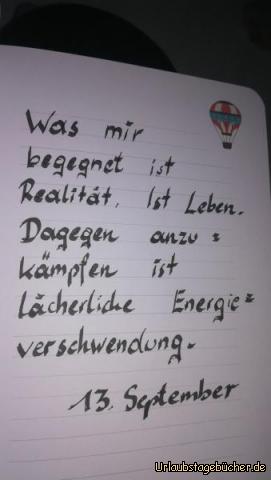 Was mir
begegnet ist
Realität. Ist Leben.
Dagegen anzu=
kämpfen ist
lächerliche Energie=
verschwendung.
13. September
Urlaubstagebücher.de